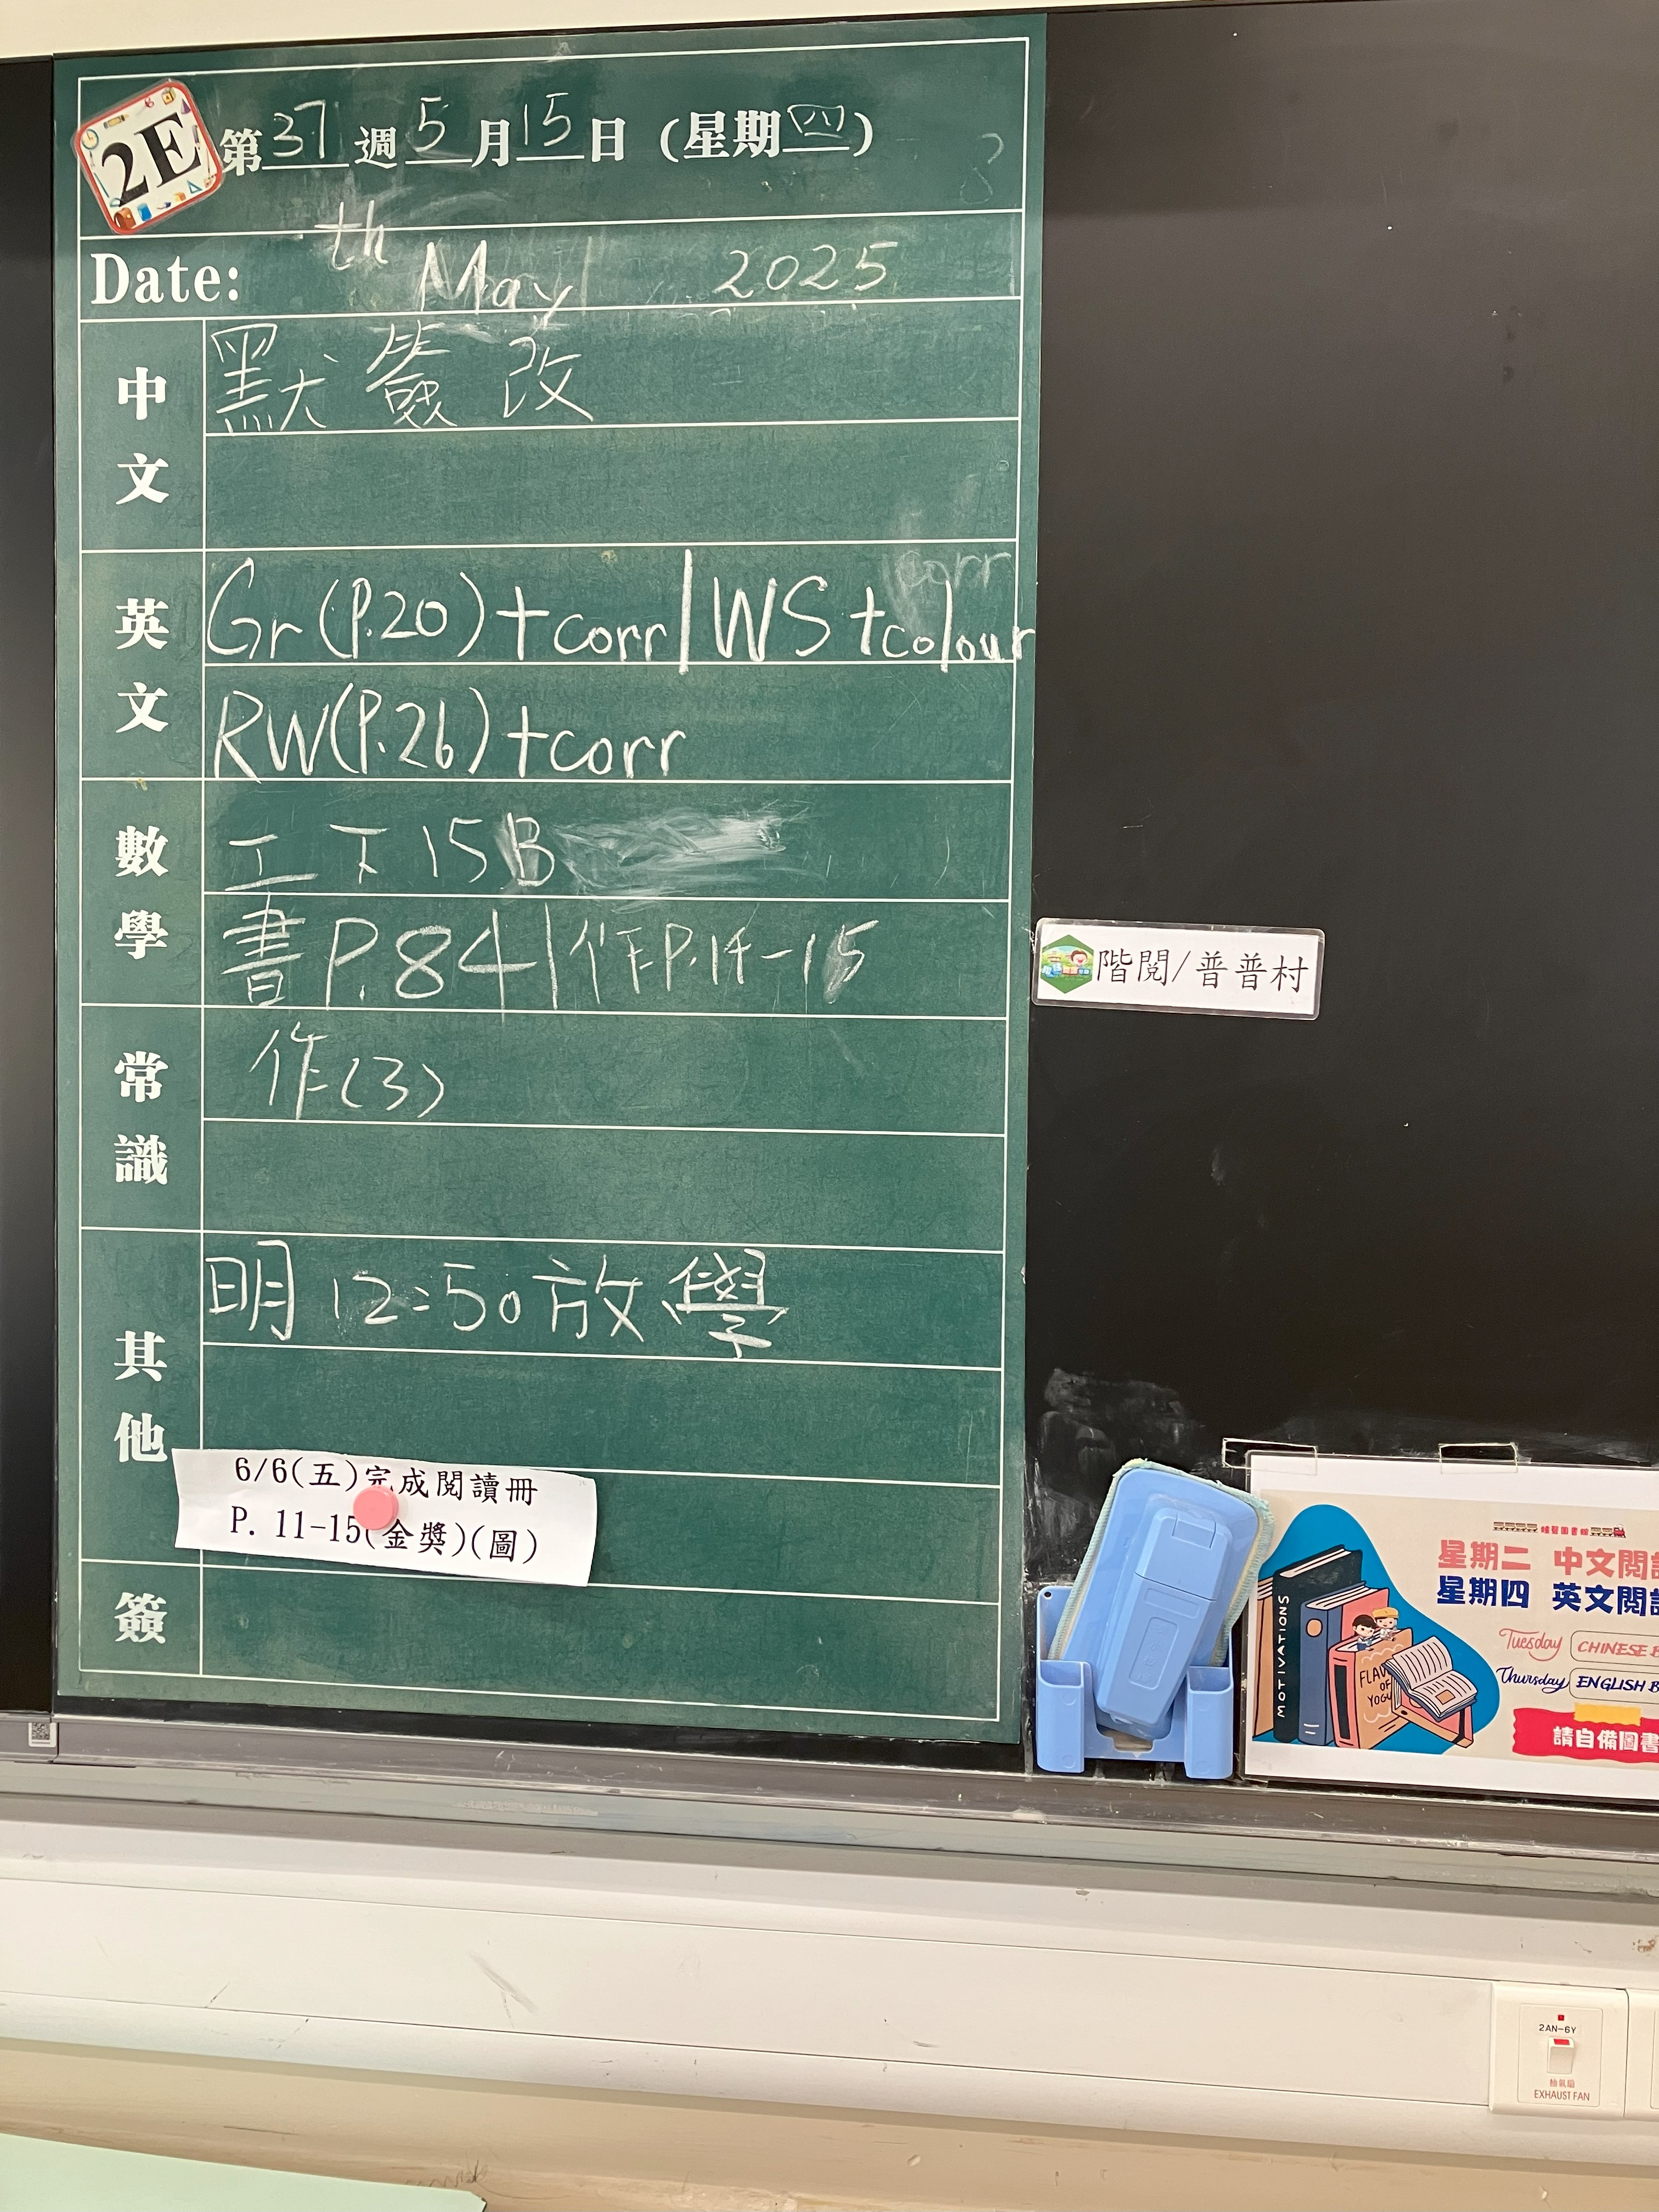 2E 第37週5月15日 (星期四)
Date: th May 2025
中文
默簽改
英文
Gr (P.20) + corr | WS + colour
corr
RW (P.26) + corr
數學
工下15B
書 P.84 | 作 P.14-15
常識
作(3)
其他
明 12:50 放學
6/6(五)完成閱讀冊
P. 11-15(金獎)(圖)
簽
階閱/普普村
星期二 中文閱
星期四 英文閱
Tuesday CHINESE B
Thursday ENGLISH B
請自備圖書
MOTIVATIONS
FLAV
OF
YOGU
2AN-6Y
抽氣扇
EXHAUST FAN